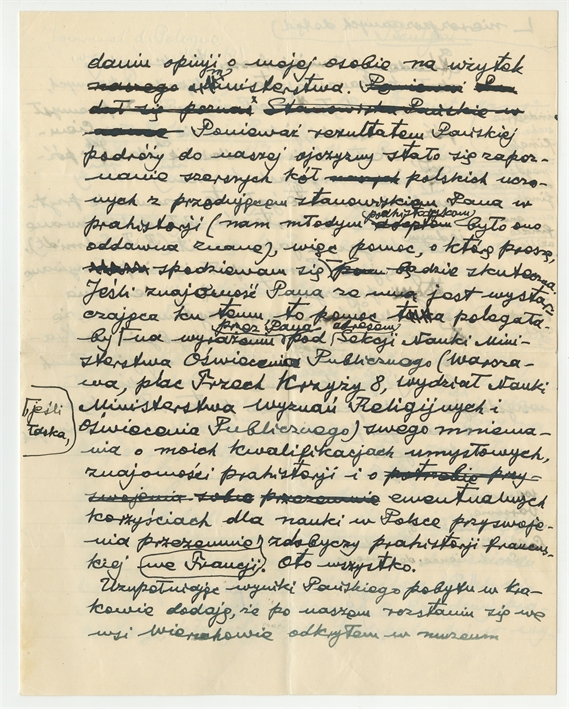 daniu opinji o mojej osobie na wzytek
naszego Ministerstwa.
dał się poznać Stanowisko Pańskie w
Ponieważ rezultatem Pańskiej
podróży do naszej ojczyzny stało się zapoz-
nanie szerszych kół polskich uczo-
nych z przodującem stanowiskiem Pana w
prahistorji (nam młodym prahistorykom adeptom było ono
oddawna znane), więc pomoc, o którą proszę,
spodziewam się będzie skuteczna.
Jeśli znajomość Pana ze mną jest wystar-
czająca ku temu to pomoc ta polegała-
by na wyrażeniu przez Pana pod adresem Sekcji Nauki Mini-
sterstwa Oświecenia Publicznego (Warsza-
wa, plac Trzech Krzyży 8, Wydział Nauki
jeśli
łaska,
Ministerstwa Wyznań Religijnych i
Oświecenia Publicznego) swego mniema-
nia o moich kwalifikacjach umysłowych,
znajomości prahistorji i o potrzebie przy-
swojenia sobie przezemnie ewentualnych
korzyściach dla nauki w Polsce przyswoje-
nia przezemnie zdobyczy prahistorji francus-
kiej (we Francji). Oto wszystko.
Uzupełniając wyniki Pańskiego pobytu w Kra-
kowie dodaję, że po naszem rozstaniu się we
wsi Wierzchowie odkryłem w muzeum